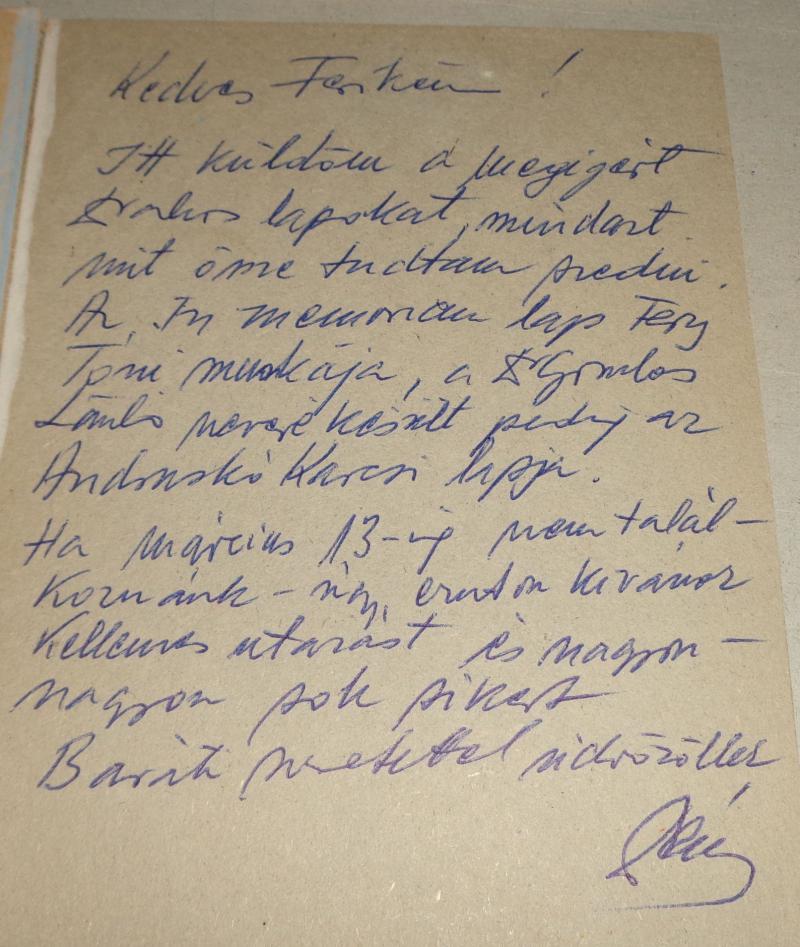 Kedves Ferikém!
Itt küldöm a megígért
lapokat, mindazt
mit össze tudtam szedni.
Az In memoriam lap Fery
Tóni munkája, a Gombos
László nevére készült pedig az
Andruskó Karcsi lapja.
Ha március 13-ig nem talál-
koznánk – úgy ezúton kívánok
kellemes utazást és nagyon –
nagyon sok sikert
Baráti szeretettel üdvözöllek